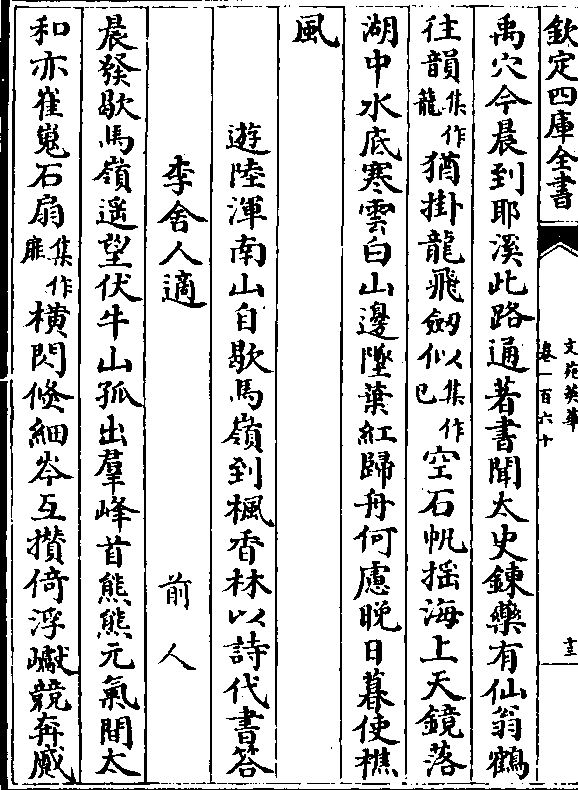 欽定四庫全書
文苑英華
卷一百六十
十三
禹穴今晨到耶溪此路通著書聞太史鍊藥有仙翁鶴
往韻集作龍猶掛龍飛劒似集作已空石帆揺海上天鏡落
湖中水底寒雲白山邊墜葉紅歸舟何慮晚日暮使樵
風
遊陸渾南山自歇馬嶺到楓香林以詩代書答
李舍人適
前人
晨發歇馬嶺遥望伏牛山孤出羣峰首熊熊元氣間太
和亦崔嵬石扇集作扉橫閃倐細岑互攅倚浮巘競奔蹙